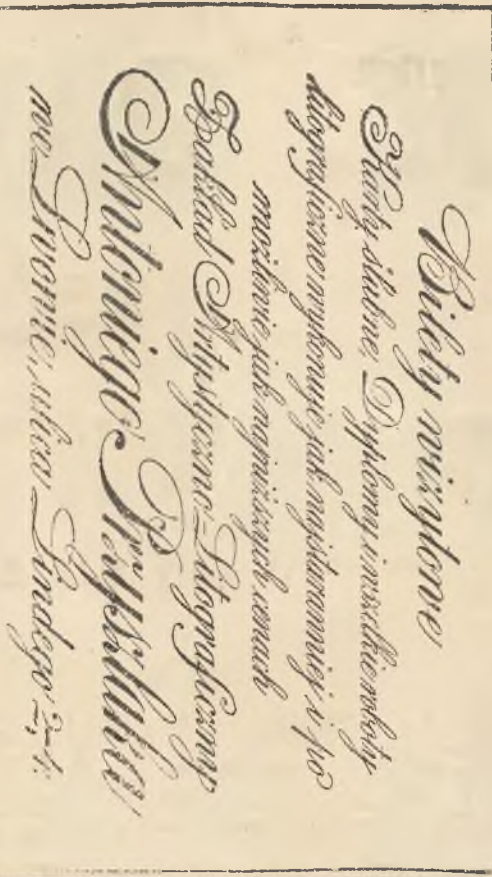 Bilety wizytowe,
Karty ślubne, Dyplomy i wszelkie roboty
litograficzne wykonuje jak najstaranniej i po
możliwie jak najniższych cenach
Zakład Artystyczno-Litograficzny
Antoniego Przyszlaka
we Lwowie, ulica Lindego